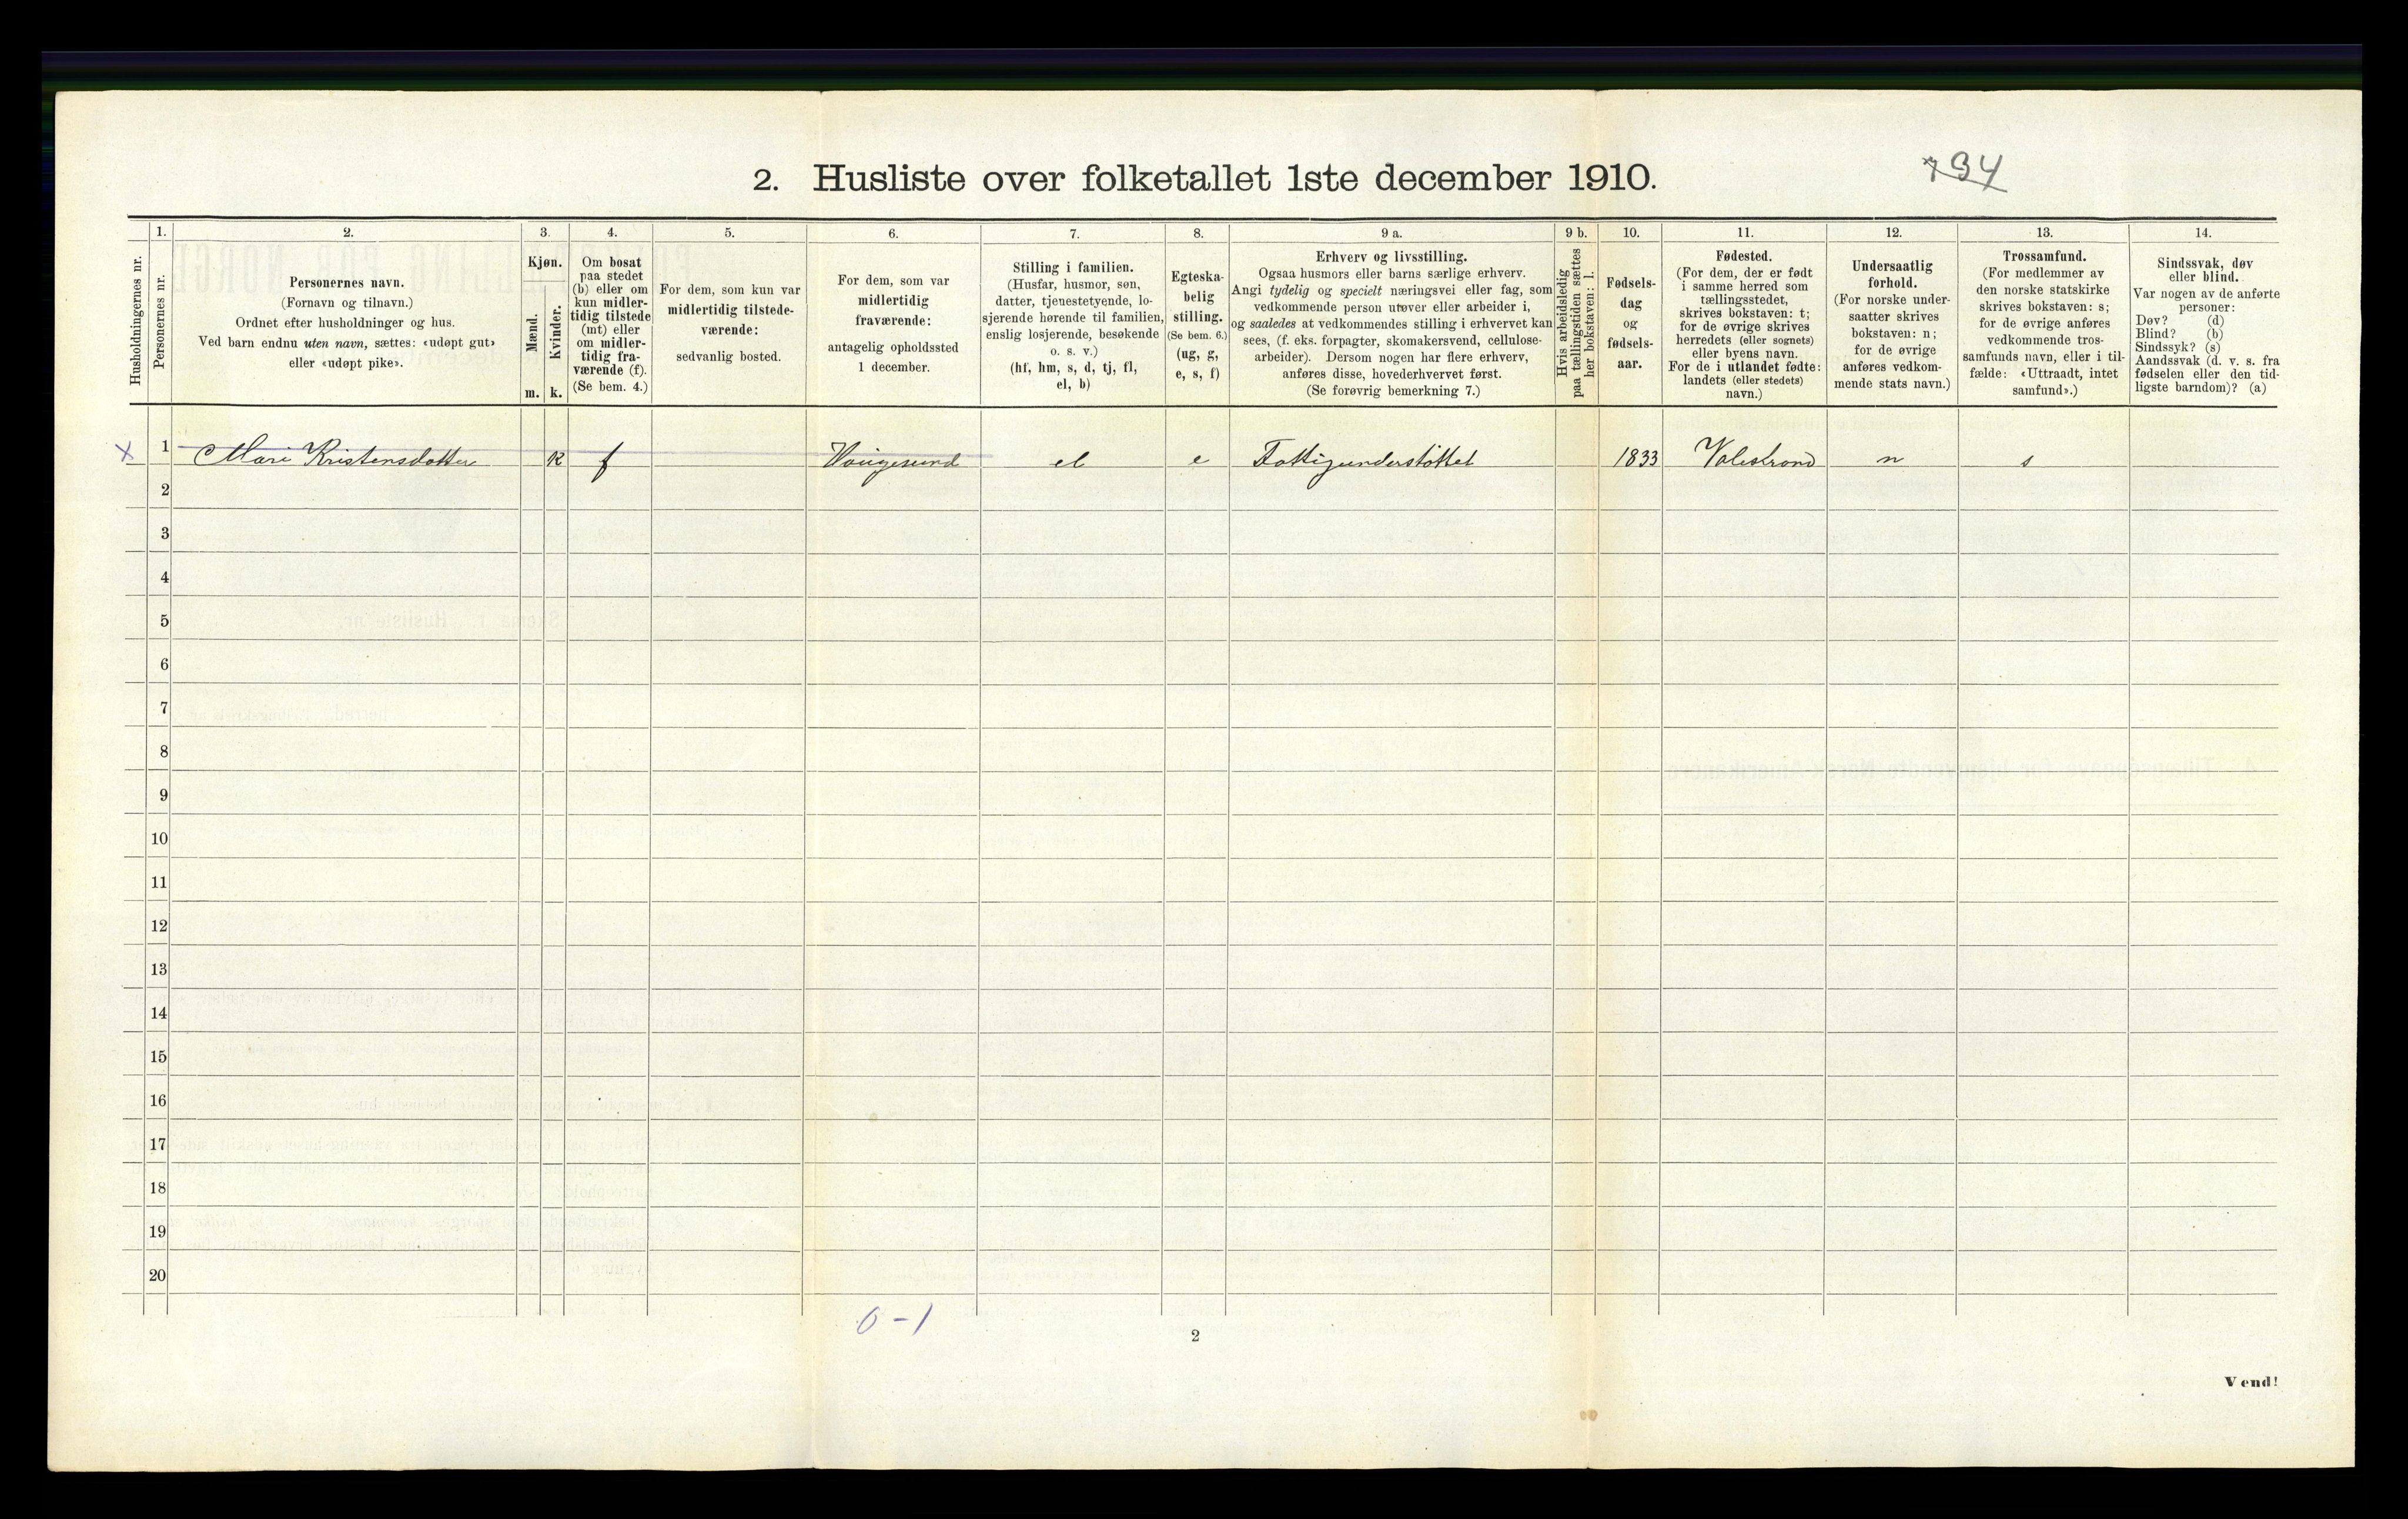 794
2. Husliste over folketallet 1ste december 1910.
Husholdningernes nr.
1.
Personernes nr.
2.
Personernes navn.
(Fornavn og tilnavn.)
Ordnet efter husholdninger og hus.
Ved barn endnu uten navn, sættes: «udøpt gut»
eller «udøpt pike».
3.
Kjøn.
Mænd.
Kvinder.
m.
k.
4.
Om bosat
paa stedet
(b) eller om
kun midler-
tidig tilstede
(mt) eller
om midler-
tidig fra-
værende (f).
(Se bem. 4.)
5.
For dem, som kun var
midlertidig tilstede-
værende:
sedvanlig bosted.
6.
For dem, som var
midlertidig
fraværende:
antagelig opholdssted
1 december.
7.
Stilling i familien.
(Husfar, husmor, søn,
datter, tjenestetyende, lo-
sjerende hørende til familien,
enslig losjerende, besøkende
o. s. v.)
(hf, hm, s, d, tj, fl,
el, b)
8.
Egteska-
belig
stilling.
(Se bem. 6.)
(ug, g,
e, s, f)
9 a.
Erhverv og livsstilling.
Ogsaa husmors eller barns særlige erhverv.
Angi tydelig og specielt næringsvei eller fag, som
vedkommende person utøver eller arbeider i,
og saaledes at vedkommendes stilling i erhvervet kan
sees, (f. eks. forpagter, skomakersvend, cellulose-
arbeider). Dersom nogen har flere erhverv,
anføres disse, hovederhvervet først.
(Se forøvrig bemerkning 7.)
9 b.
Hvis arbeidsledig
paa tællingstiden sættes
her bokstaven: l.
10.
Fødsels-
dag
og
fødsels-
aar.
11.
Fødested.
(For dem, der er født
i samme herred som
tællingsstedet,
skrives bokstaven: t;
for de øvrige skrives
herredets (eller sognets)
eller byens navn.
For de i utlandet fødte:
landets (eller stedets)
navn.)
12.
Undersaatlig
forhold.
(For norske under-
saatter skrives
bokstaven: n;
for de øvrige
anføres vedkom-
mende stats navn.)
13.
Trossamfund.
(For medlemmer av
den norske statskirke
skrives bokstaven: s;
for de øvrige anføres
vedkommende tros-
samfunds navn, eller i til-
fælde: «Uttraadt, intet
samfund».)
14.
Sindssvak, døv
eller blind.
Var nogen av de anførte
personer:
Døv? (d)
Blind? (b)
Sindssyk? (s)
Aandssvak (d. v. s. fra
fødselen eller den tid-
ligste barndom)? (a)
x 1 Mari Kristensdatter k f Haugesund el e Fattigunderstöttet 1833 Valestrand n s
2
3
4
5
6
7
8
9
10
11
12
13
14
15
16
17
18
19
20
0 - 1
2
Vend!